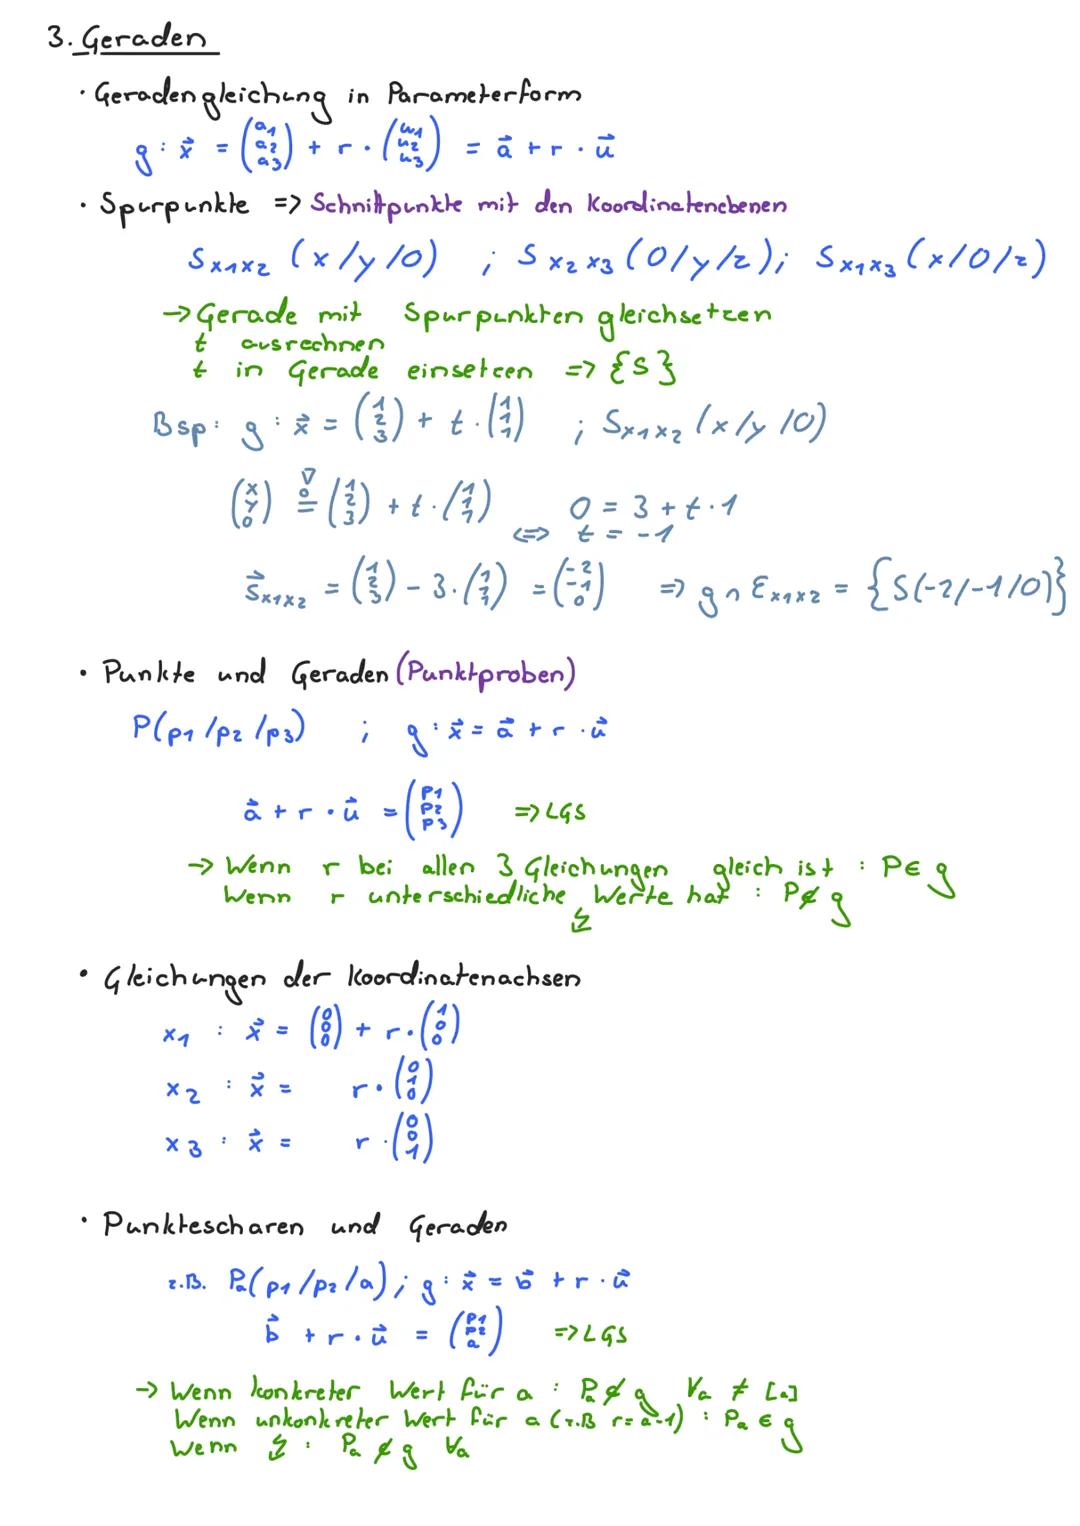 3. Geraden
· Geradengleichung in Parameterform
g : x⃗ = (a1 a2 a3) + r · (u1 u2 u3) = a⃗ + r · u⃗
· Spurpunkte => Schnittpunkte mit den Koordinatenebenen
Sx1x2 (x/y/0) ; Sx2x3 (0/y/z); Sx1x3 (x/0/z)
→ Gerade mit Spurpunkten gleichsetzen
t ausrechnen
t in Gerade einsetzen => {S}
Bsp: g : x⃗ = (1 2 3) + t · (1 1 1) ; Sx1x2 (x/y/0)
(x y 0) = (1 2 3) + t · (1 1 1) 0 = 3 + t · 1
<=> t = -1
S⃗x1x2 = (1 2 3) - 3 · (1 1 1) = (-2 -1 0) => g ∩ Ex1x2 = {S(-2/-1/0)}
· Punkte und Geraden (Punktproben)
P(p1/p2/p3) ; g : x⃗ = a⃗ + r · u⃗
a⃗ + r · u⃗ = (P1 P2 P3) => LGS
→ Wenn r bei allen 3 Gleichungen gleich ist : P ∈ g
Wenn r unterschiedliche Werte hat : P ∉ g
↯
· Gleichungen der Koordinatenachsen
x1 : x⃗ = (0 0 0) + r · (1 0 0)
x2 : x⃗ = r · (0 1 0)
x3 : x⃗ = r · (0 0 1)
· Punktescharen und Geraden
z.B. Pa(p1/p2/a); g : x⃗ = b⃗ + r · u⃗
b⃗ + r · u⃗ = (P1 P2 a) => LGS
→ Wenn konkreter Wert für a : Pa ∉ g ∀a ≠ [a]
Wenn unkonkreter Wert für a (z.B r = a-1) : Pa ∈ g
Wenn ↯ : Pa ∉ g ∀a